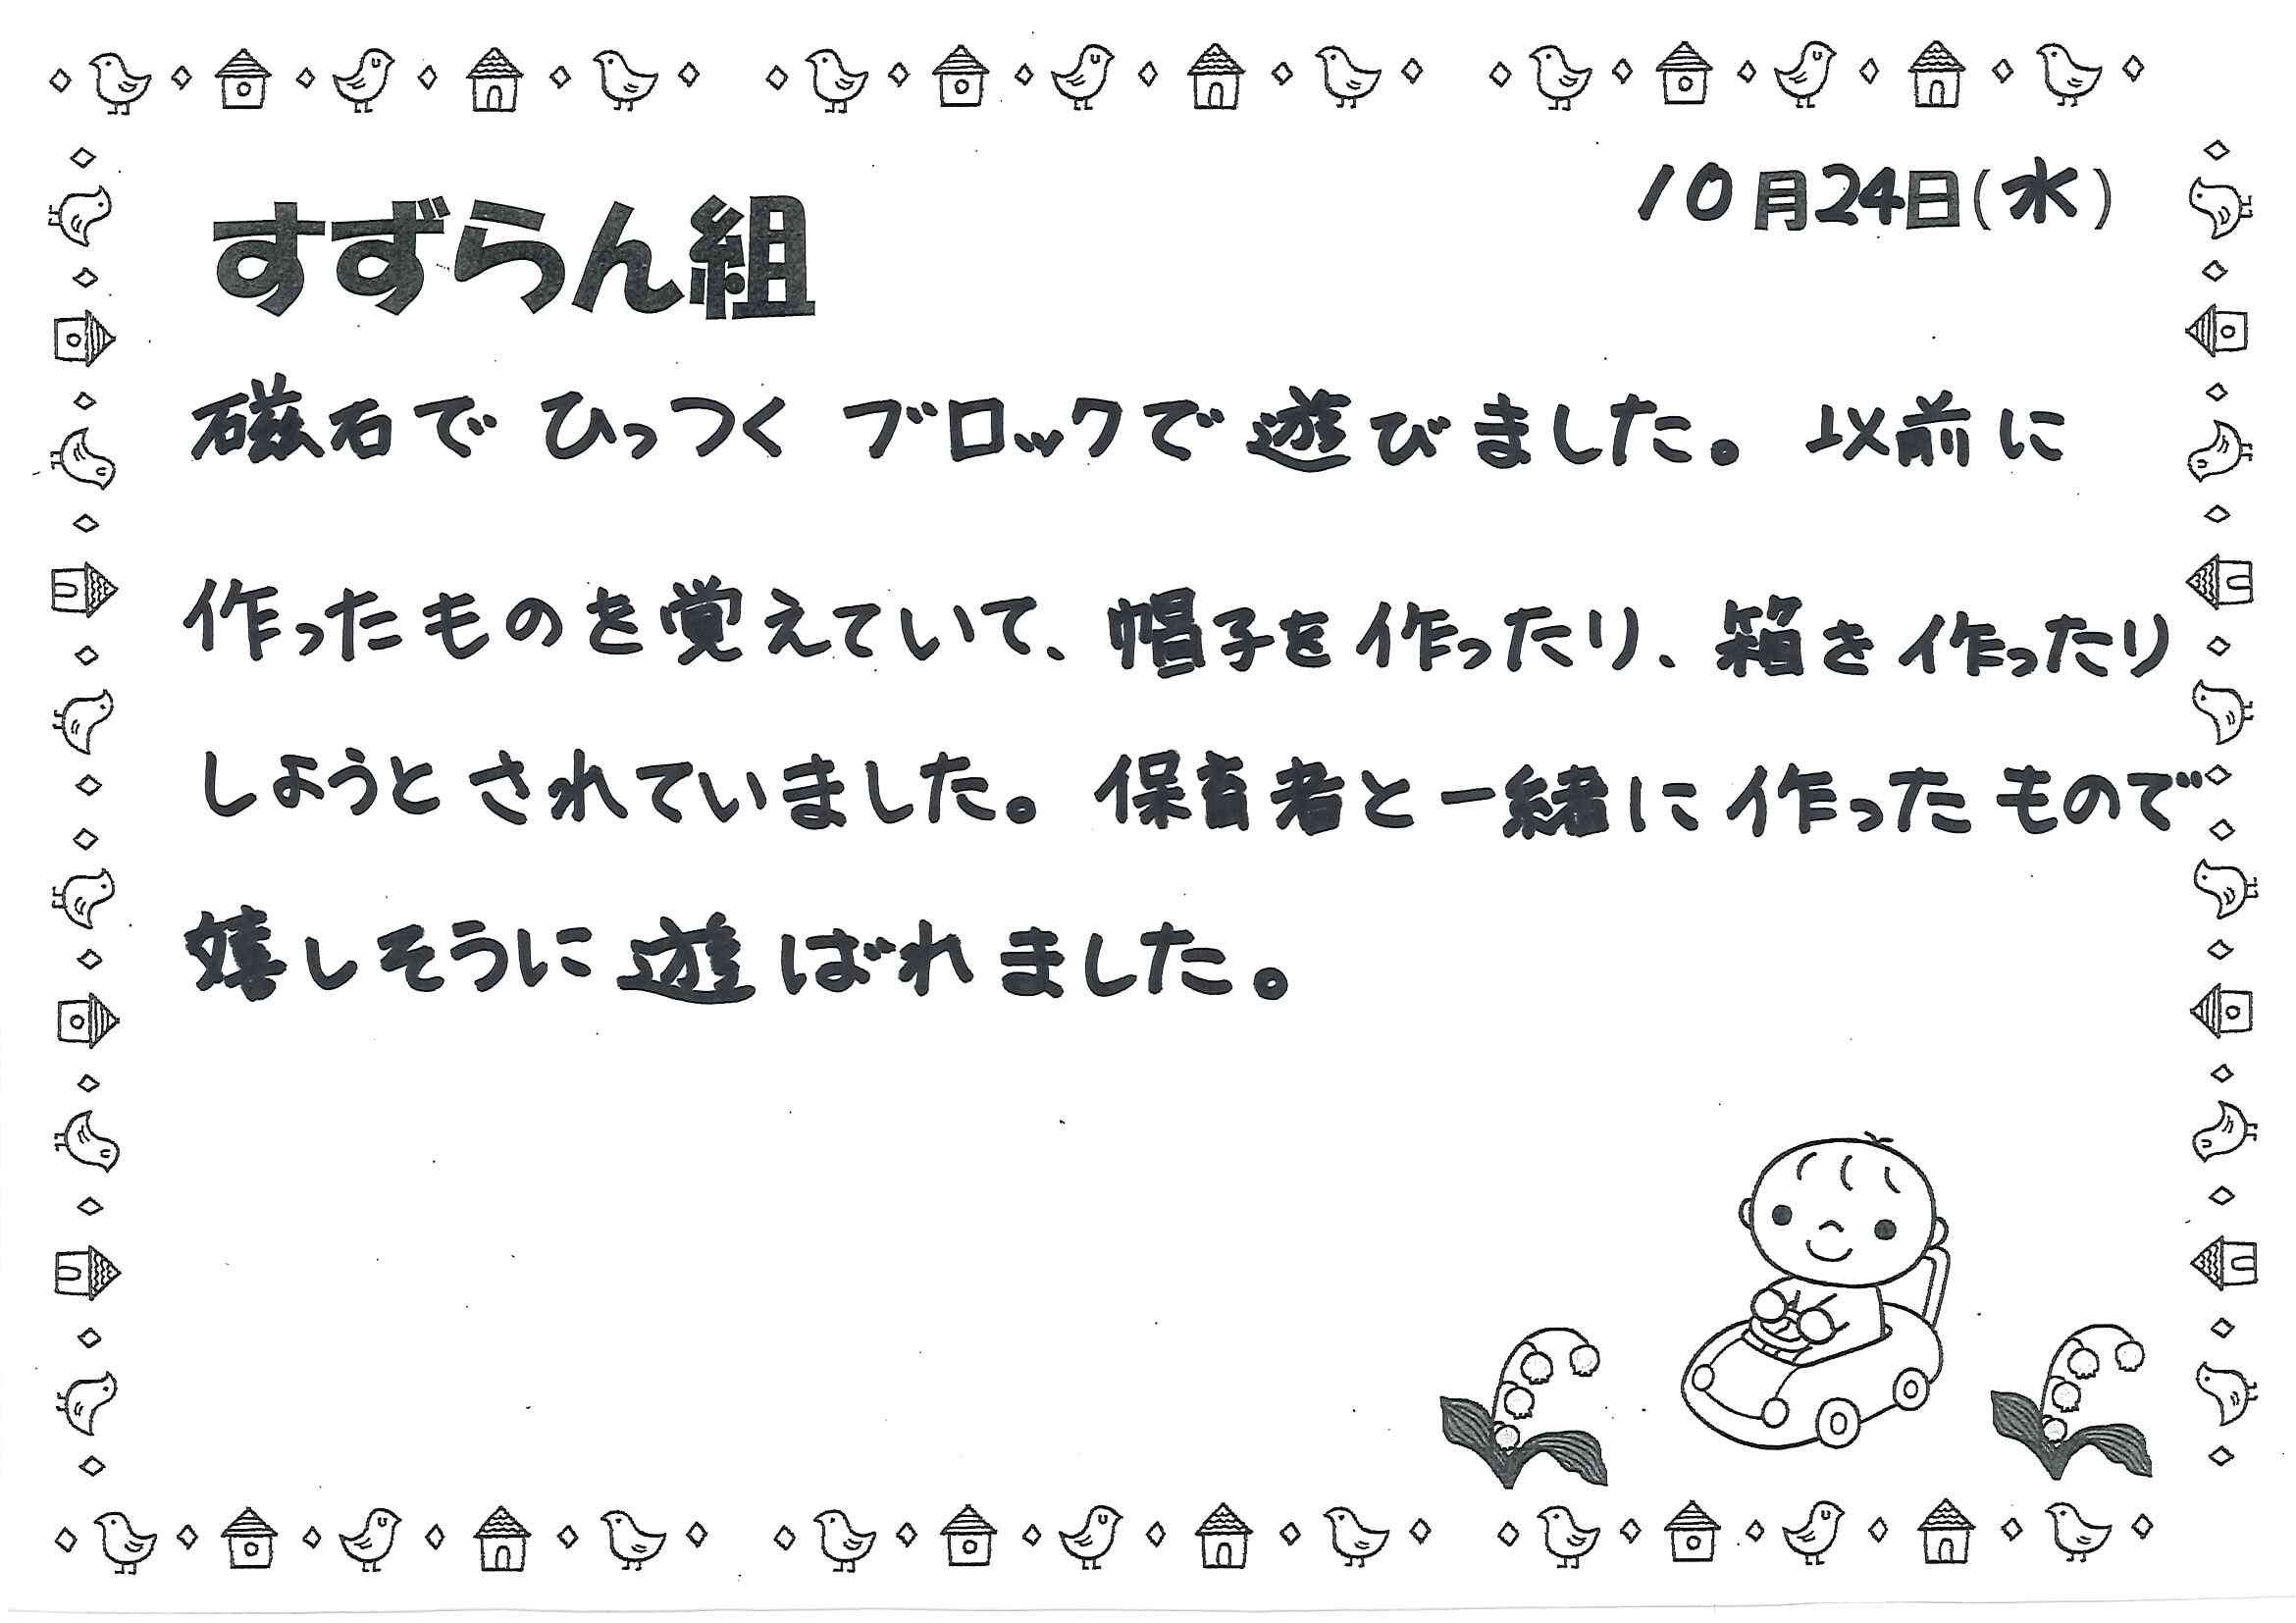 10月24日(水)
すずらん組
磁石でひっつくブロックで遊びました。以前に
作ったものを覚えていて、帽子を作ったり、箱を作ったり
しようとされていました。保育者と一緒に作ったもので
嬉しそうに遊ばれました。